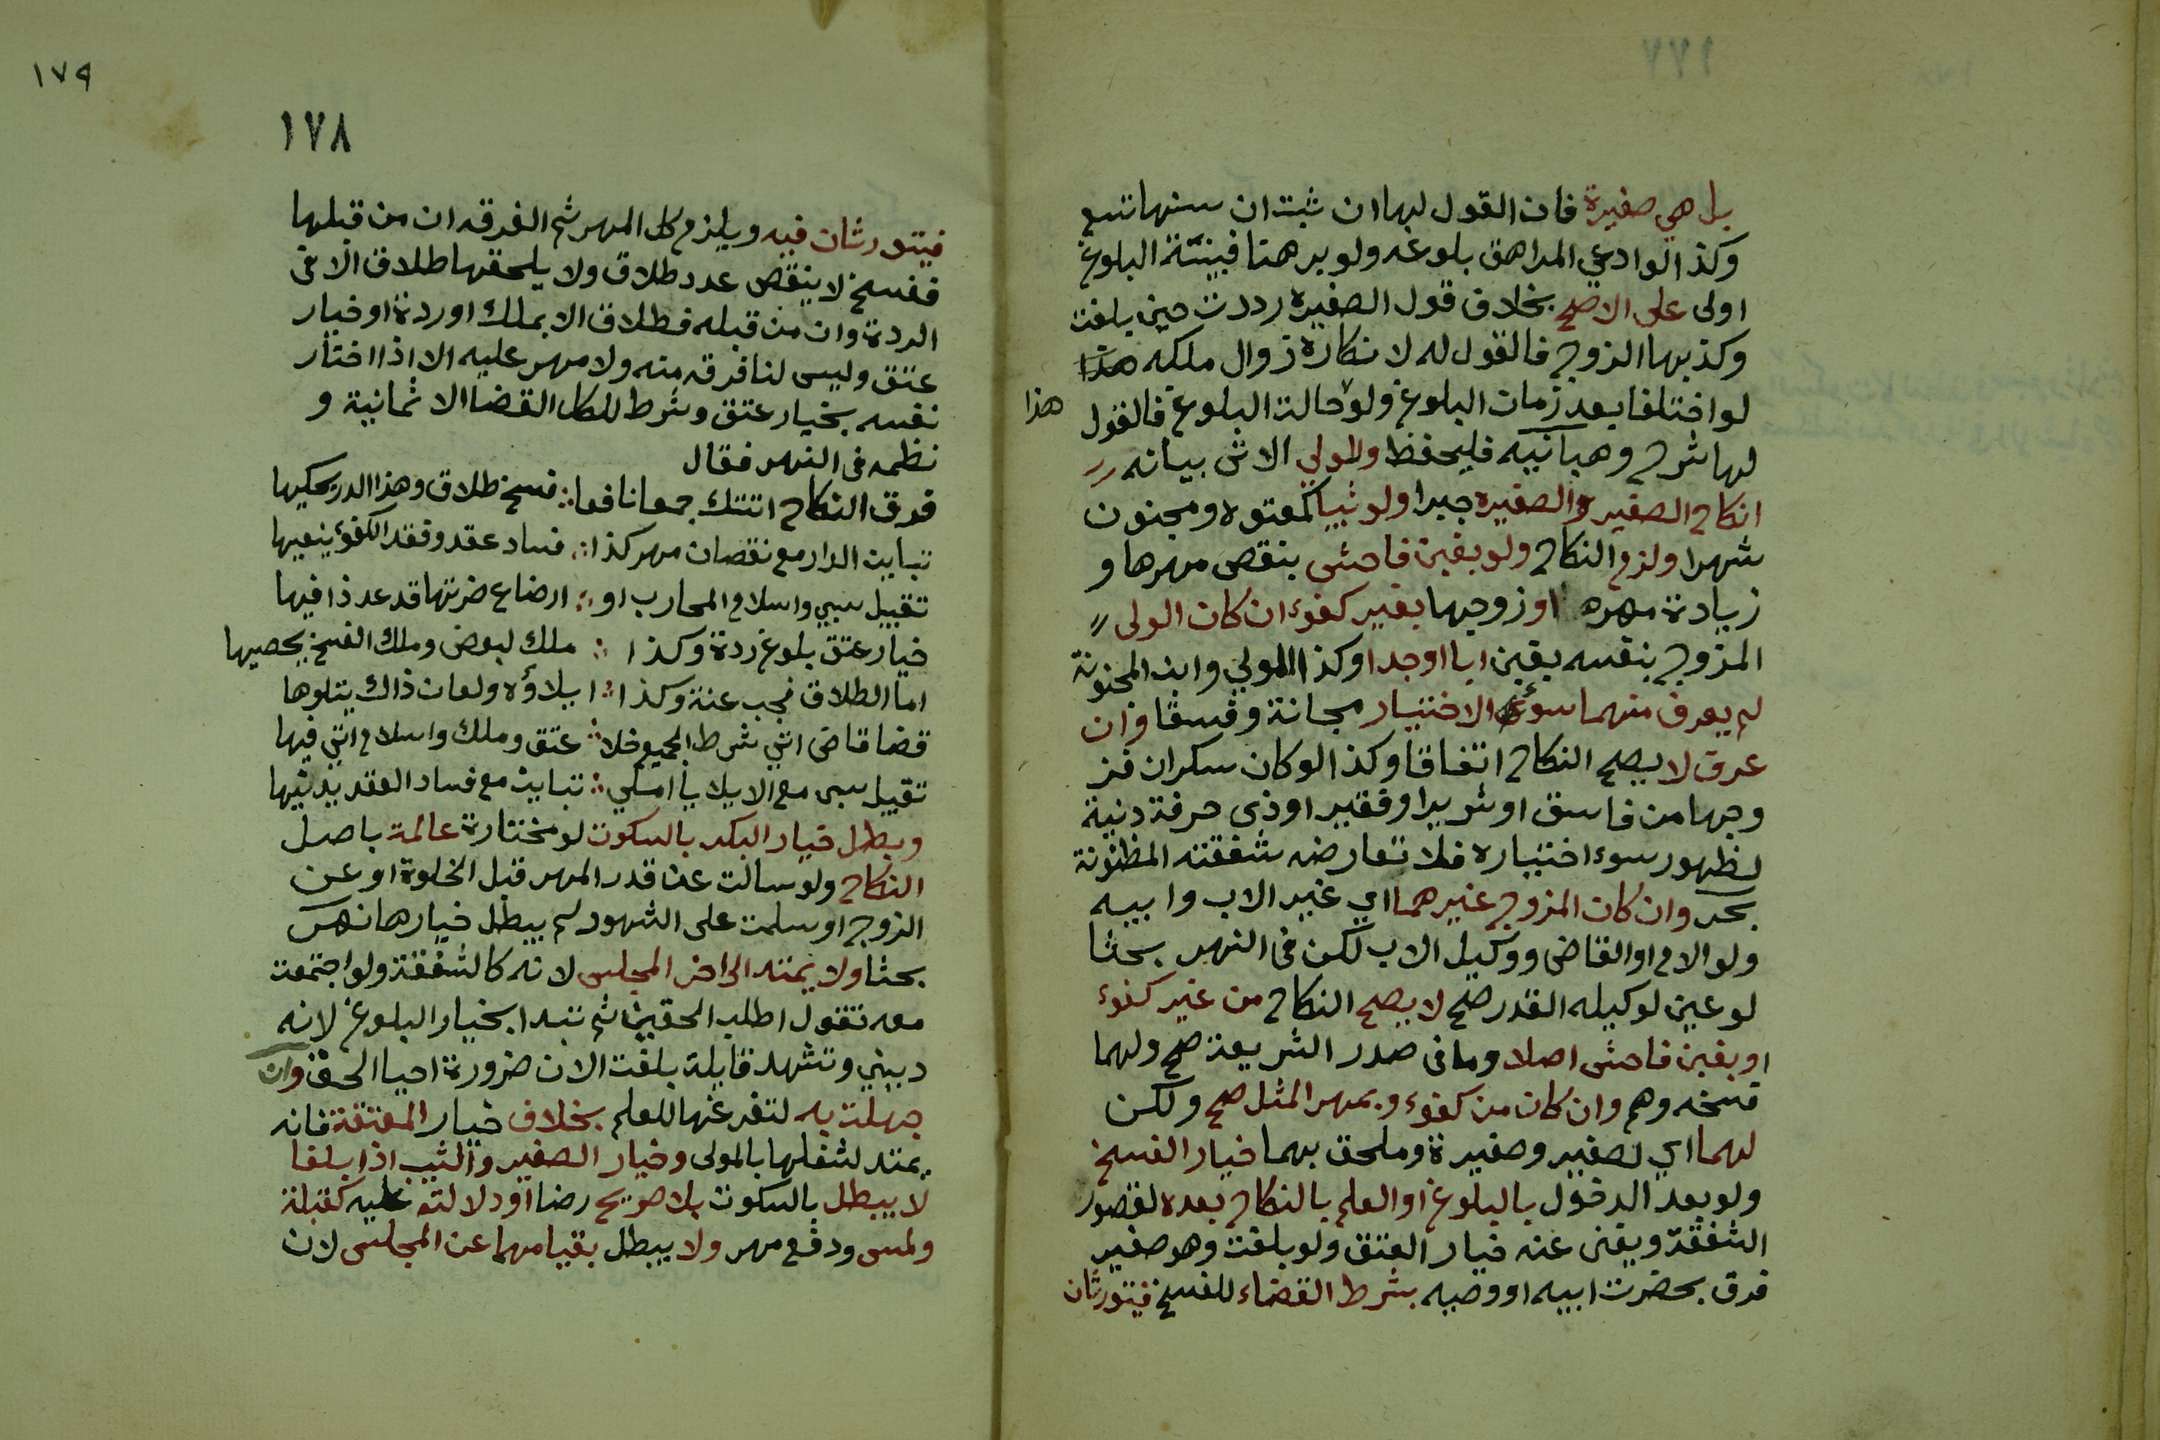 بل هي صغيرة فان القول لها ان ثبت ان سنها تسع
وكذا لو ادعي المراهق بلوغه ولو برهنا فبينّة البلوغ
اولى على الاصح بخلاف قول الصغيرة رددت حين بلغت
وكذبها الزوج فالقول له لانكاره زوال ملكه هذا
لو اختلفا بعد زمان البلوغ ولو حالت البلوغ فالقول
هذا
لها شرح وهبانيه فليحفظ وللولي الاتي بيانه
انكاح الصغير والصغيره جبرا ولو ثيبا كمعتوه ومجنون
شهرا ولزم النكاح ولو بغبن فاحش بنقص مهرها و
زيادة مهره او زوجها بغير كفوء ان كان الولى
المزوج بنفسه بغبن ابا او جدا وكذا المولي وابن المجنونة
لم يعرف منهما سوء الاختيار مجانة وفسقا وان
عرف لا يصح النكاح اتفاقا وكذا لو كان سكران فز
وجها من فاسق او شرير او فقير او ذي حرفة دنية
لظهور سوء اختياره فلا تعارضه شفقته المظنونة
بحر وان كان المزوج غيرهما اي غير الاب وابيه
ولو الام او القاضي ووكيل الاب لكن في النهر بحثا
لو عين لوكيله القدر صح لا يصح النكاح من غير كفوء
او بغبن فاحش اصلا وما في صدر الشريعة صح ولهما
فسخه وهم وان كان من كفوء وبمهر المثل صح ولكن
لهما اي لصغير وصغيرة وملحق بهما خيار الفسخ
ولو بعد الدخول بالبلوغ او العلم بالنكاح بعده لقصور
الشفقة ويغني عنه خيار العتق ولو بلغت وهو صغير
فرق بحضرت ابيه او وصيه بشرط القضاء للفسخ فيتورثان
١٧٩
١٧٨
فيتورثان فيه ويلزم كل المهر ثم الفرقه ان من قبلها
ففسخ لا ينقص عدد طلاق ولا يلحقها طلاق الا في
الردة وان من قبله فطلاق الا بملك او ردة او خيار
عتق وليس لنا فرقه منه ولا مهر عليه الا اذا اختار
نفسه بخيار عتق وشرط للكل القضا الا ثمانية و
نظمه في النهر فقال
فرق النكاح اتتك جمعا نافعا ∴ فسخ طلاق وهذا الدر يحكيها
تباين الدار مع نقصان مهر كذا ∴ فساد عقد وفقد الكفوء ينعيها
تقبيل سبي واسلام المحارب او ∴ ارضاع ضرتها قد عد ذا فيها
خيار عتق بلوغ ردة وكذا ∴ ملك لبعض وملك الفسخ يحصيها
اما الطلاق فجب عنة وكذا ∴ ايلاؤه ولعان ذاك يتلوها
قضا قاض اتي شرط الجميع خلا ∴ عتق وملك واسلام اتي فيها
تقبيل سبي مع الايلا يا املي ∴ تباين مع فساد العقد يدنيها
وبطل خيار البكر بالسكوت لو مختارة عالمة باصل
النكاح ولو سالت عن قدر المهر قبل الخلوة او عن
الزوج او سلمت على الشهود لم يبطل خيارها نهر
بحثا ولا يمتد الى اخر المجلس لانه كالشفقة ولو اجتمعت
معه تقول اطلب الحقين ثم تبدا بخيار البلوغ لانه
ديني وتشهد قايلة بلغت الان ضرورة احيا الحق وان
جهلت به لتفرغها للعلم بخلاف خيار المعتقة فانه
يمتد لشغلها بالمولى وخيار الصغير والثيب اذا بلغا
لا يبطل بالسكوت بلا صريح رضا او دلالته عليه كقبلة
ولمس ودفع مهر ولا يبطل بقيامهما عن المجلس لان